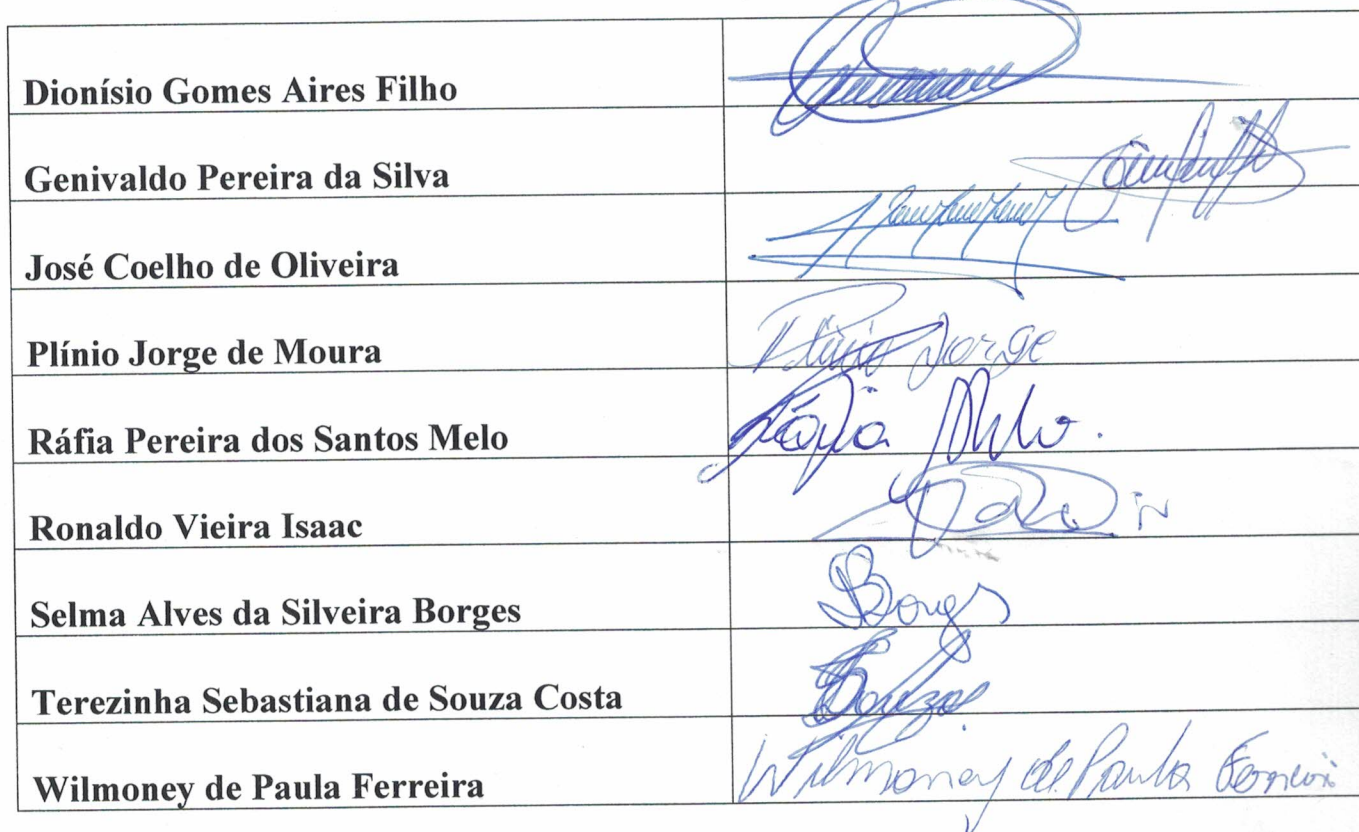 Dionísio Gomes Aires Filho
Genivaldo Pereira da Silva
José Coelho de Oliveira
Plínio Jorge de Moura Plínio Jorge
Ráfia Pereira dos Santos Melo Ráfia Melo.
Ronaldo Vieira Isaac
Selma Alves da Silveira Borges Borges
Terezinha Sebastiana de Souza Costa Souza
Wilmoney de Paula Ferreira Wilmoney de Paula Ferreira